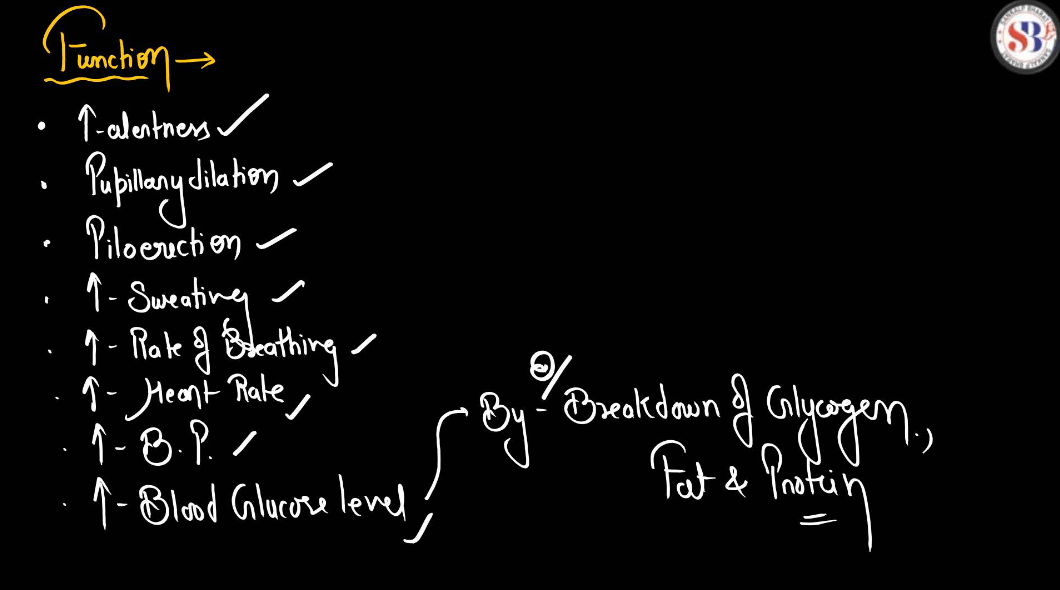 Function →
• ↑-alertness ✓
• Pupillary dilation ✓
• Piloerection ✓
• ↑- Sweating ✓
• ↑- Rate of Breathing ✓
• ↑- Heart Rate ✓
• ↑- B.P. ✓
• ↑- Blood Glucose level ✓
By - Breakdown of Glycogen,
Fat & Protein
SB